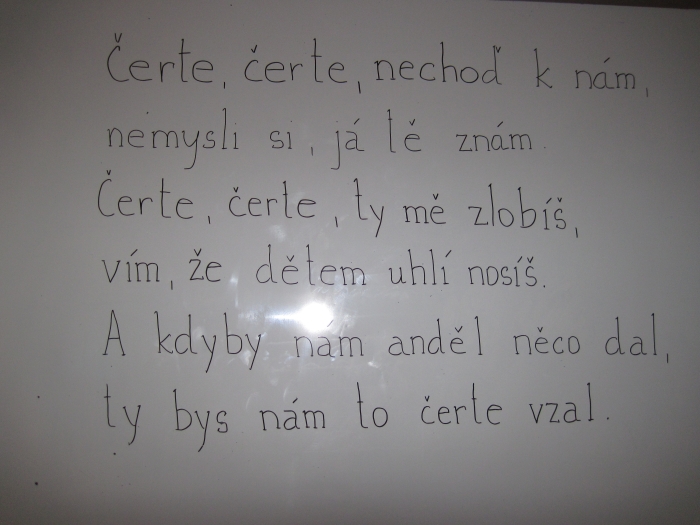 Čerte, čerte, nechoď k nám,
nemysli si, já tě znám.
Čerte, čerte, ty mě zlobíš,
vím, že dětem uhlí nosíš.
A kdyby nám anděl něco dal,
ty bys nám to čerte vzal.